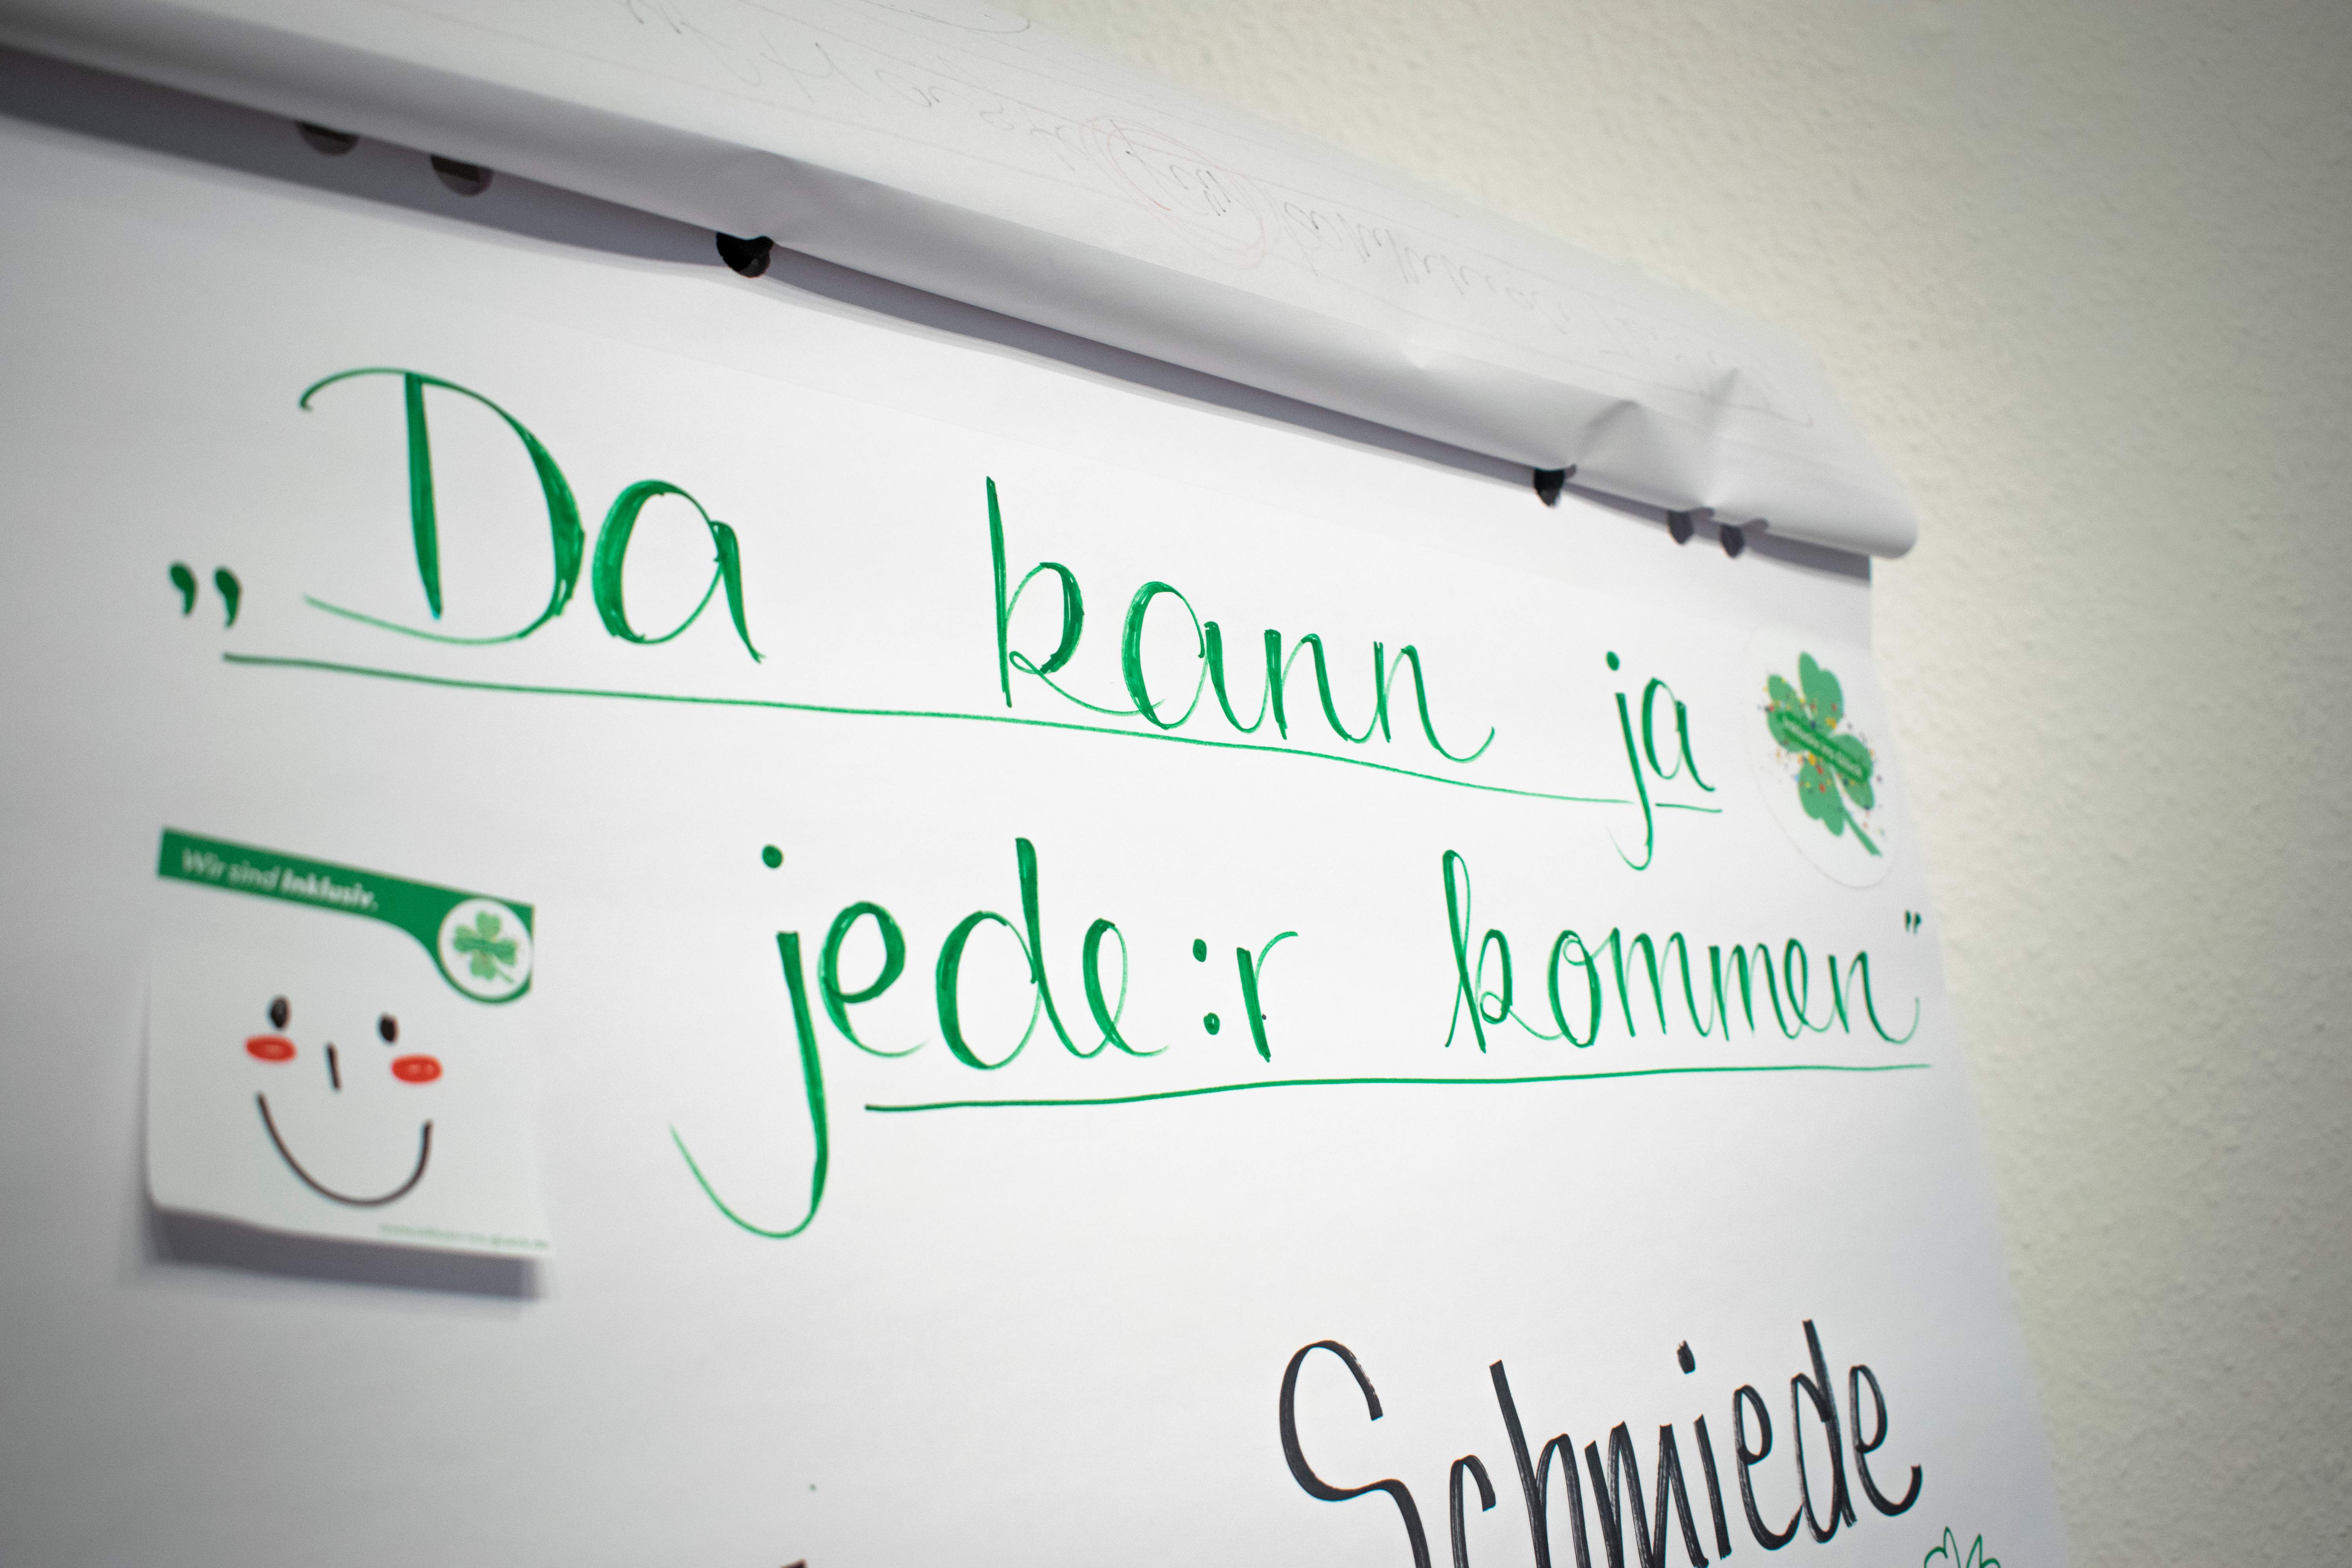 „Da kann ja
jede:r kommen"
Wir sind Inklusiv.
Schmiede